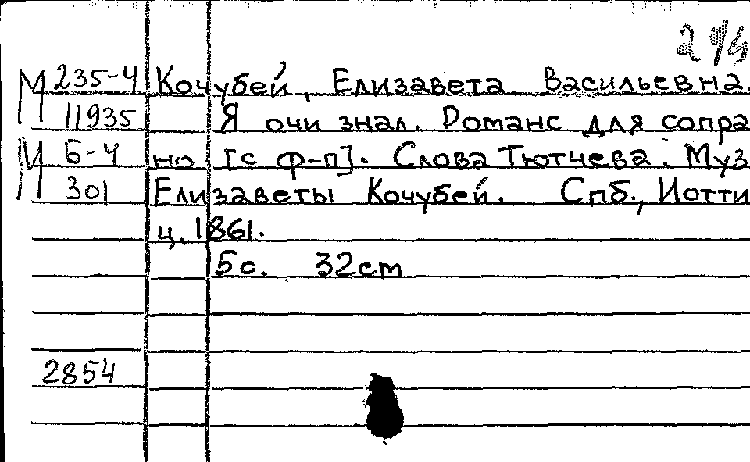 М 235-4 Кочубей, Елизавета Васильевна.
11935 Я очи знал. Романс для сопра
М Б-4 но [с ф-п]. Слова Тютчева. Муз
301 Елизаветы Кочубей. Спб., Иотти
ц. 1861.
5с. 32cm
2854